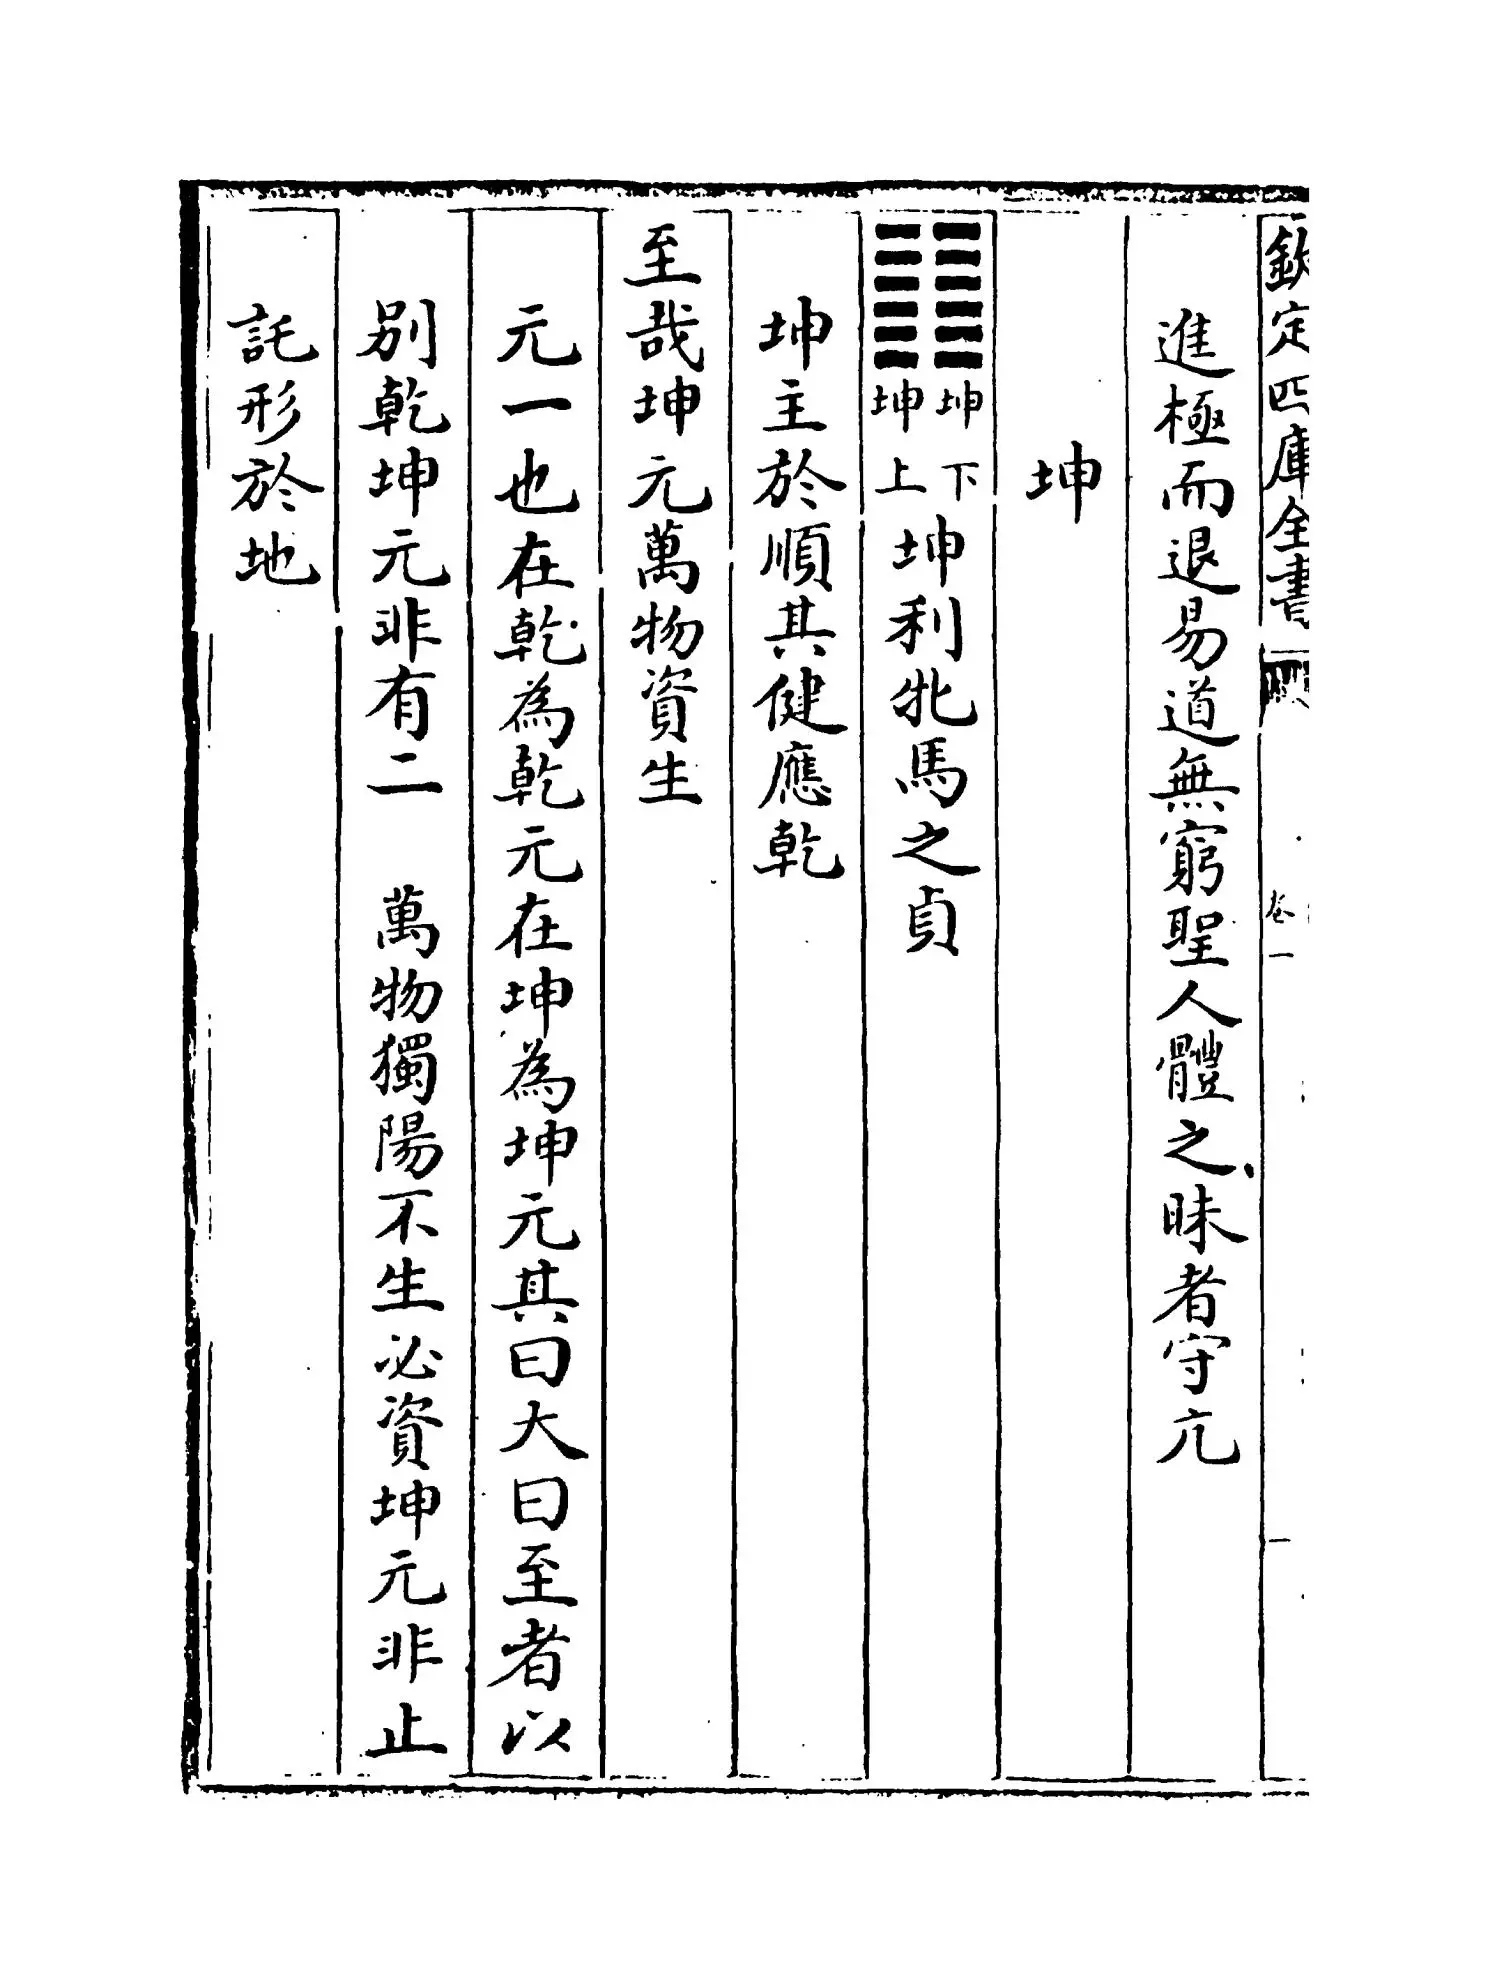 欽定四庫全書
卷一
進極而退易道無窮聖人體之昧者守亢
坤
坤下坤上坤利牝馬之貞
坤主於順其健應乾
至哉坤元萬物資生
元一也在乾為乾元在坤為坤元其曰大曰至者以
別乾坤元非有二　萬物獨陽不生必資坤元非止
託形於地